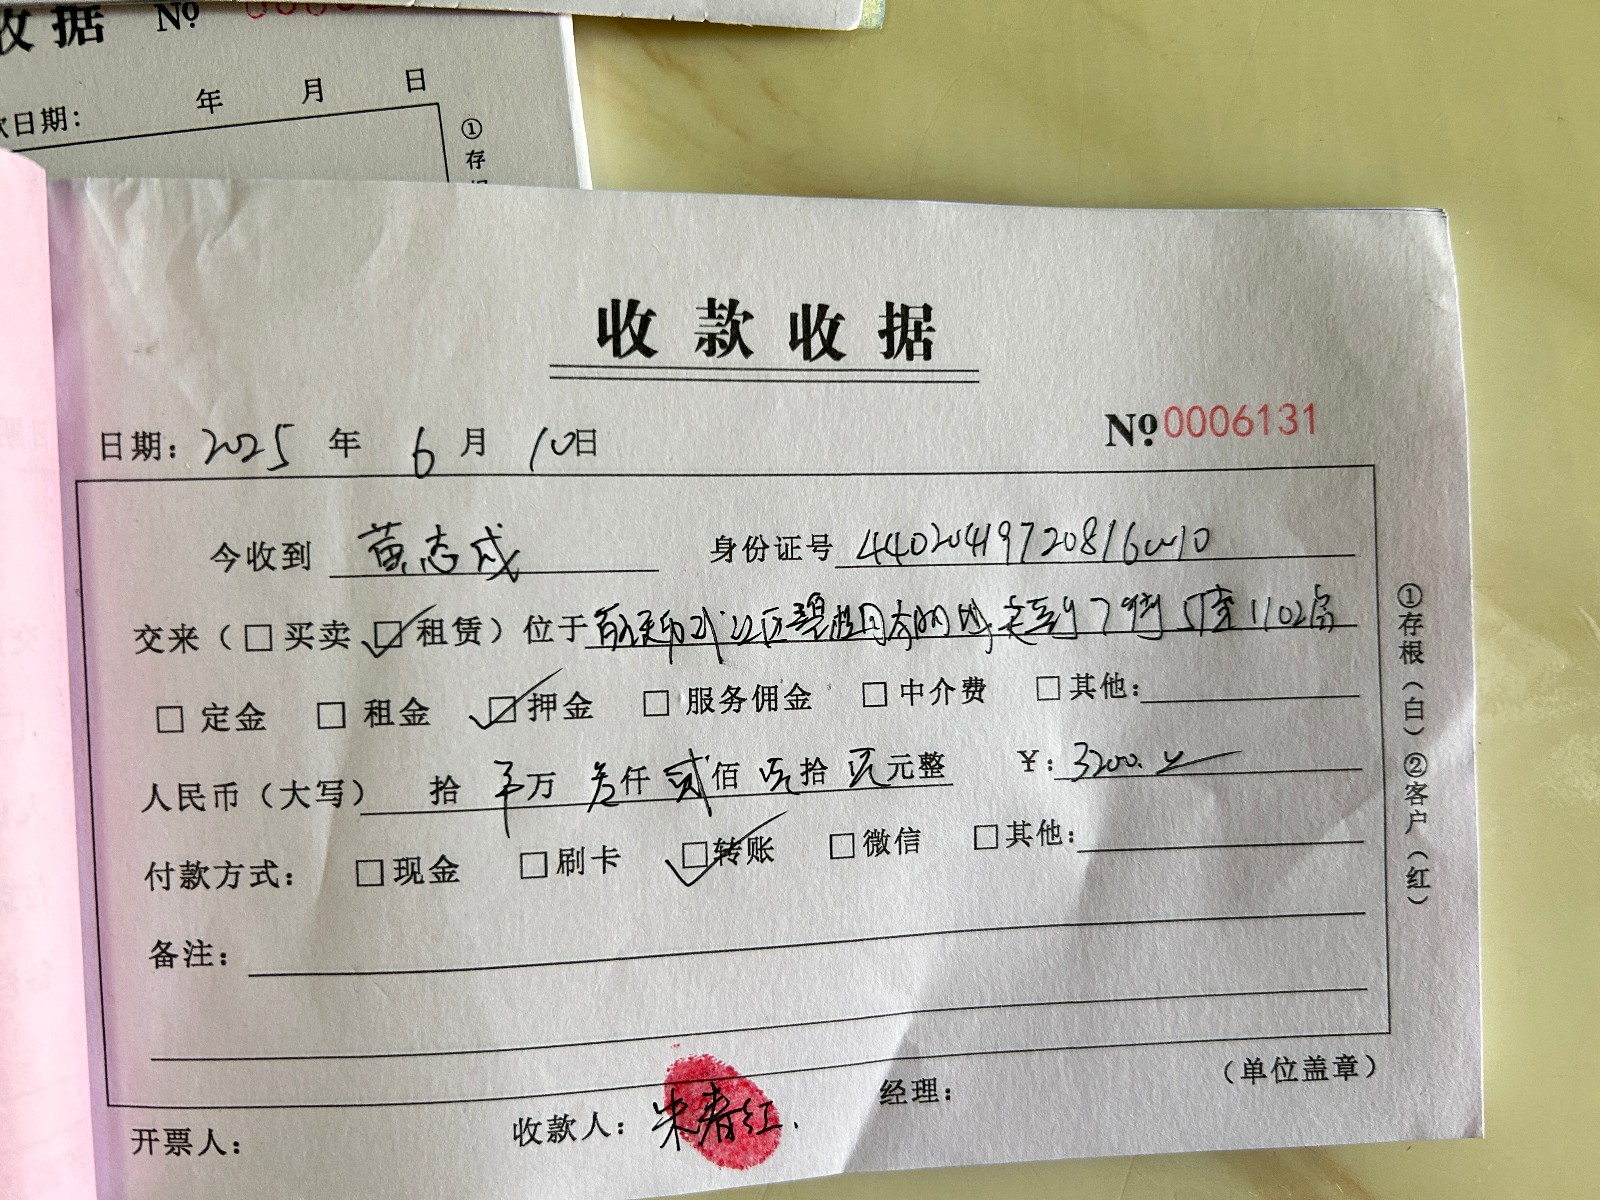 收据 No
日期: 年 月 日
①存
收款收据
日期: 2025 年 6 月 10日
No 0006131
今收到 黄志成 身份证号
交来（□买卖 ☑租赁）位于 江区碧桂园 7 5座1102房
□定金 □租金 ☑押金 □服务佣金 □中介费 □其他:
人民币（大写） 拾 万 叁仟 贰佰 拾 元整 ¥: 3200.
付款方式: □现金 □刷卡 ☑转账 □微信 □其他:
备注:
（单位盖章）
开票人: 收款人: 朱春红. 经理:
①存根（白）②客户（红）